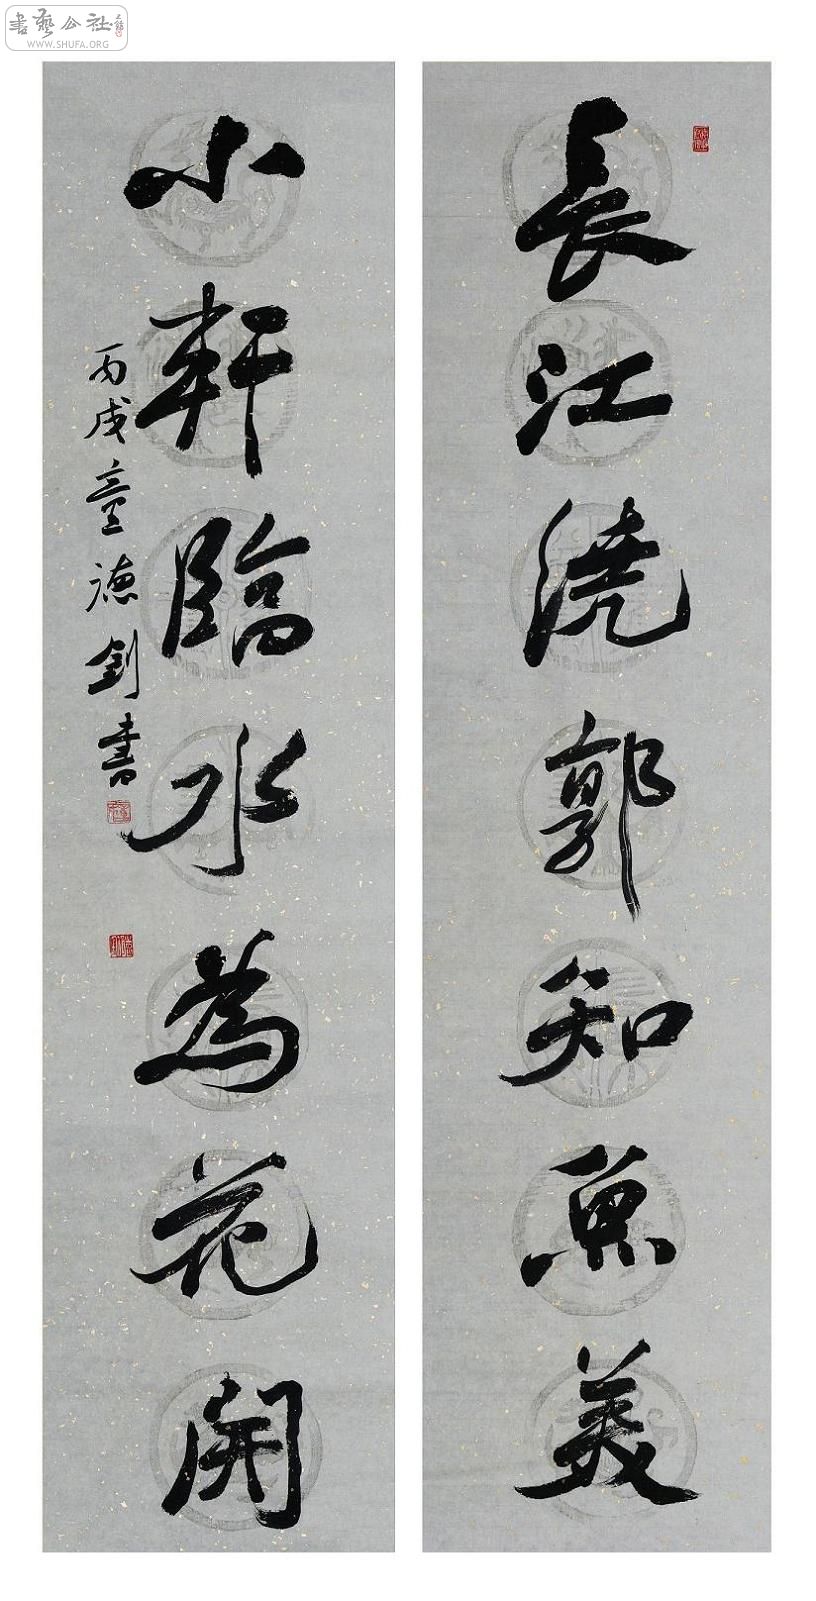 書藝公社
WWW.SHUFA.ORG
長江繞郭知魚美
小軒臨水為花開
丙戌童德釗書